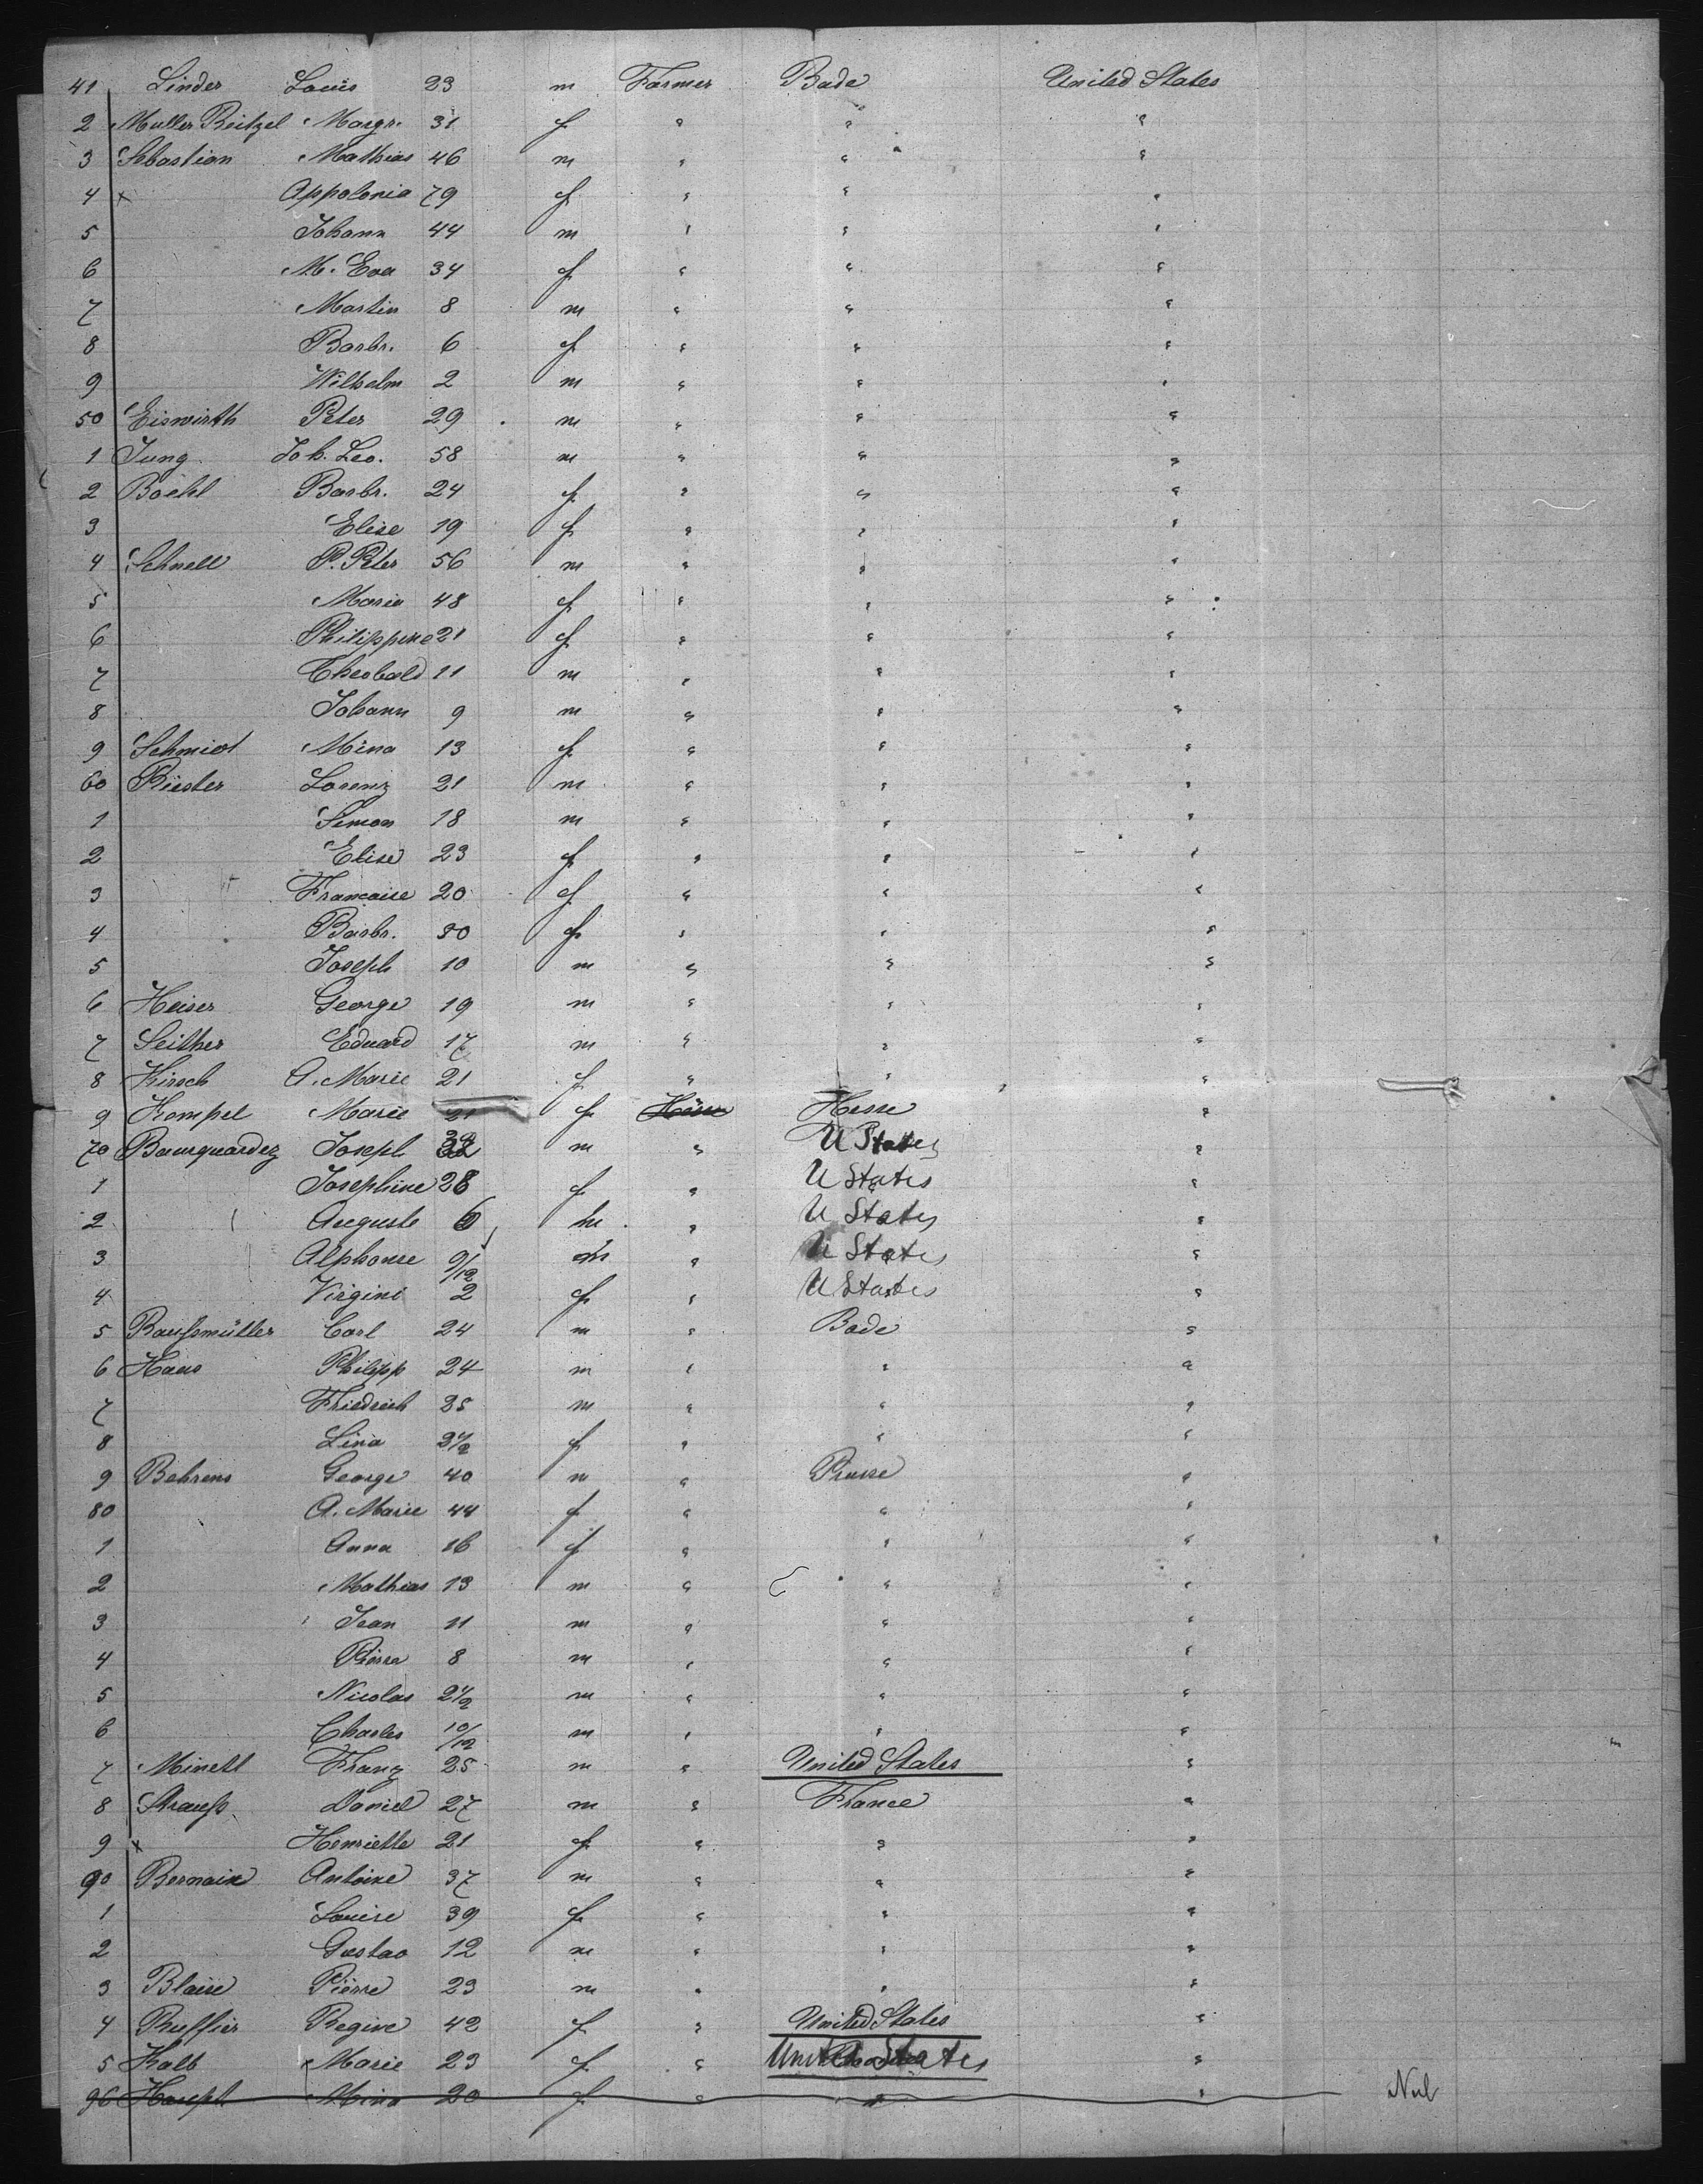 41 Linder Louis 23 m Farmer Bade United States
2 Muller Beitzel Margr. 31 f " " "
3 Sebastian Mathias 46 m " " "
4 x Appolonia 79 f " " "
5 Johann 44 m " " "
6 M. Eva 34 f " " "
7 Martin 8 m " " "
8 Barbr. 6 f " " "
9 Wilhelm 2 m " " "
50 Eiswirth Peter 29 m " " "
1 Jung Joh. Leo. 58 m " " "
2 Boehl Barbr. 24 f " " "
3 Elise 19 f " " "
4 Schnell P. Peter 56 m " " "
5 Maria 48 f " " "
6 Philippine 21 f " " "
7 Theobald 11 m " " "
8 Johann 9 m " " "
9 Schmidt Mina 13 f " " "
60 Riester Lorenz 21 m " " "
1 Simon 18 m " " "
2 Elise 23 f " " "
3 Francaise 20 f " " "
4 Barbr. 30 f " " "
5 Joseph 10 m " " "
6 Heiser George 19 m " " "
7 Seither Eduard 17 m " " "
8 Hirsch A. Marie 21 f " " "
9 Kempel Marie 21 f Hesse Hesse "
70 Bourquardez Joseph 32 m " U States "
1 Josephine 28 f " U States "
2 Auguste 6 m " U States "
3 Alphonse 9/12 m " U States "
4 Virgini 2 f " U States "
5 Baußmüller Carl 24 m " Bade "
6 Haas Philipp 24 m " " "
7 Friedrich 25 m " " "
8 Lina 2 1/2 f " " "
9 Behrens George 40 m " Prusse "
80 A. Marie 44 f " " "
1 Anna 16 f " " "
2 Mathias 13 m " " "
3 Jean 11 m " " "
4 Pierre 8 m " " "
5 Nicolas 2 1/2 m " " "
6 Charles 10/12 m " " "
7 Minett Franz 25 m " United States "
8 Strauß Daniel 27 m " France "
9 x Henriette 21 f " " "
90 Bernaix Antoine 37 m " " "
1 Louise 39 f " " "
2 Gustav 12 m " " "
3 Blaise Pierre 23 m " " "
4 Ruffier Regine 42 f " United States "
5 Kalb Marie 23 f " United States "
96 Haupt Mina 20 f " " " Nul